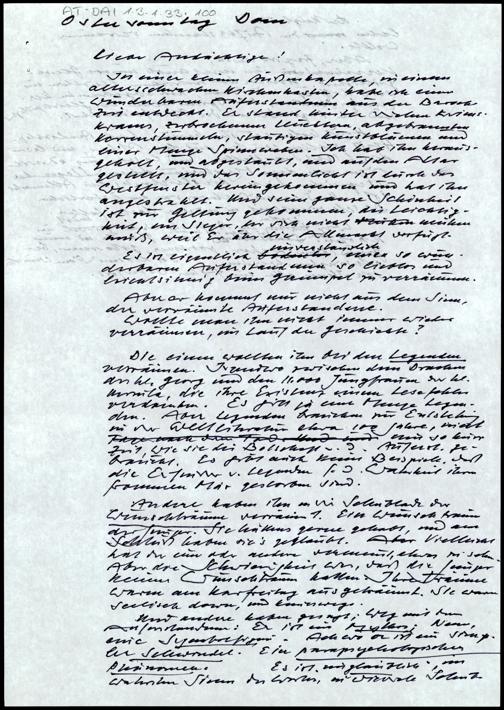 AT-DAI 1.3-1.33, 100
Ostersonntag Dom
Liebe Andächtige!
In einer kleinen Außenkapelle, in einem
altersschwachen Kirchenkasten, habe ich einen
wunderbaren Auferstandenen aus der Barock-
zeit entdeckt. Er stand hinter vielen Krims-
krams, zerbrochenen Leuchtern, abgebrannten
Kerzenstümmeln, staubigen Kunstblumen und
einer Menge Spinnweben. Ich hab ihn heraus-
geholt, und abgestaubt, und auf den Altar
gestellt, und das Sonnenlicht ist durch das
Westfenster hereingekommen und hat ihn
angestrahlt. Und seine ganze Schönheit
ist zur Geltung gekommen, die Leichtig-
keit, ein Sieger, der sich nicht mühen
muß, weil Er über die Allmacht verfügt.
Es ist eigentlich unverständlich, einen so wun-
derbaren Auferstandenen so lieblos und
beim Gerümpel zu verräumen.
Aber er kommt mir nicht aus dem Sinn,
der verräumte Auferstandene.
Wollte man ihn nicht immer wieder
verräumen, im Lauf der Geschichte?
Die einen wollten ihn bei den Legenden
verräumen. Irgendwo zwischen dem Drachen
des hl. Georg und den 11.000 Jungfrauen der hl.
Ursula, die ihre Existenz einem Lesefehler
verdanken. Es gibt ja eine Menge Legen-
den. Aber Legenden brauchen zur Entstehung
in der Weltliteratur etwa 100 Jahre, nicht
nur so kurze
Zeit, wie sie bei Botschaft v. d. Auferst. ge-
braucht. Es gibt auch keine Beispiele, daß
die Erfinder v. Legenden f. d. Wahrheit ihrer
frommen Mär gestorben sind.
Andere haben ihn in die Schublade der
Wunschträume verräumt. Ein Wunschtraum
der Jünger. Sie hättens gerne gehabt, und am
Schluß haben sie's geglaubt. Aber vielleicht
hat der eine oder andere vermeint, etwas zu sehn.
Aber die Schwierigkeit war, daß die Jünger
keine Wunschträume hatten. Ihre Träume
waren am Karfreitag ausgeträumt. Sie waren
seelisch down,
Und andere haben gesagt: Weg mit dem
Auferstandenen! Er ist ein Mythos; Nein,
eine Symbolfigur. Ach wo er ist ein simp-
ler Schwindel. Ein parapsychologisches
Phänomen. Es ist unglaublich, im
wahrsten Sinne des Wortes, in wieviele Schub-